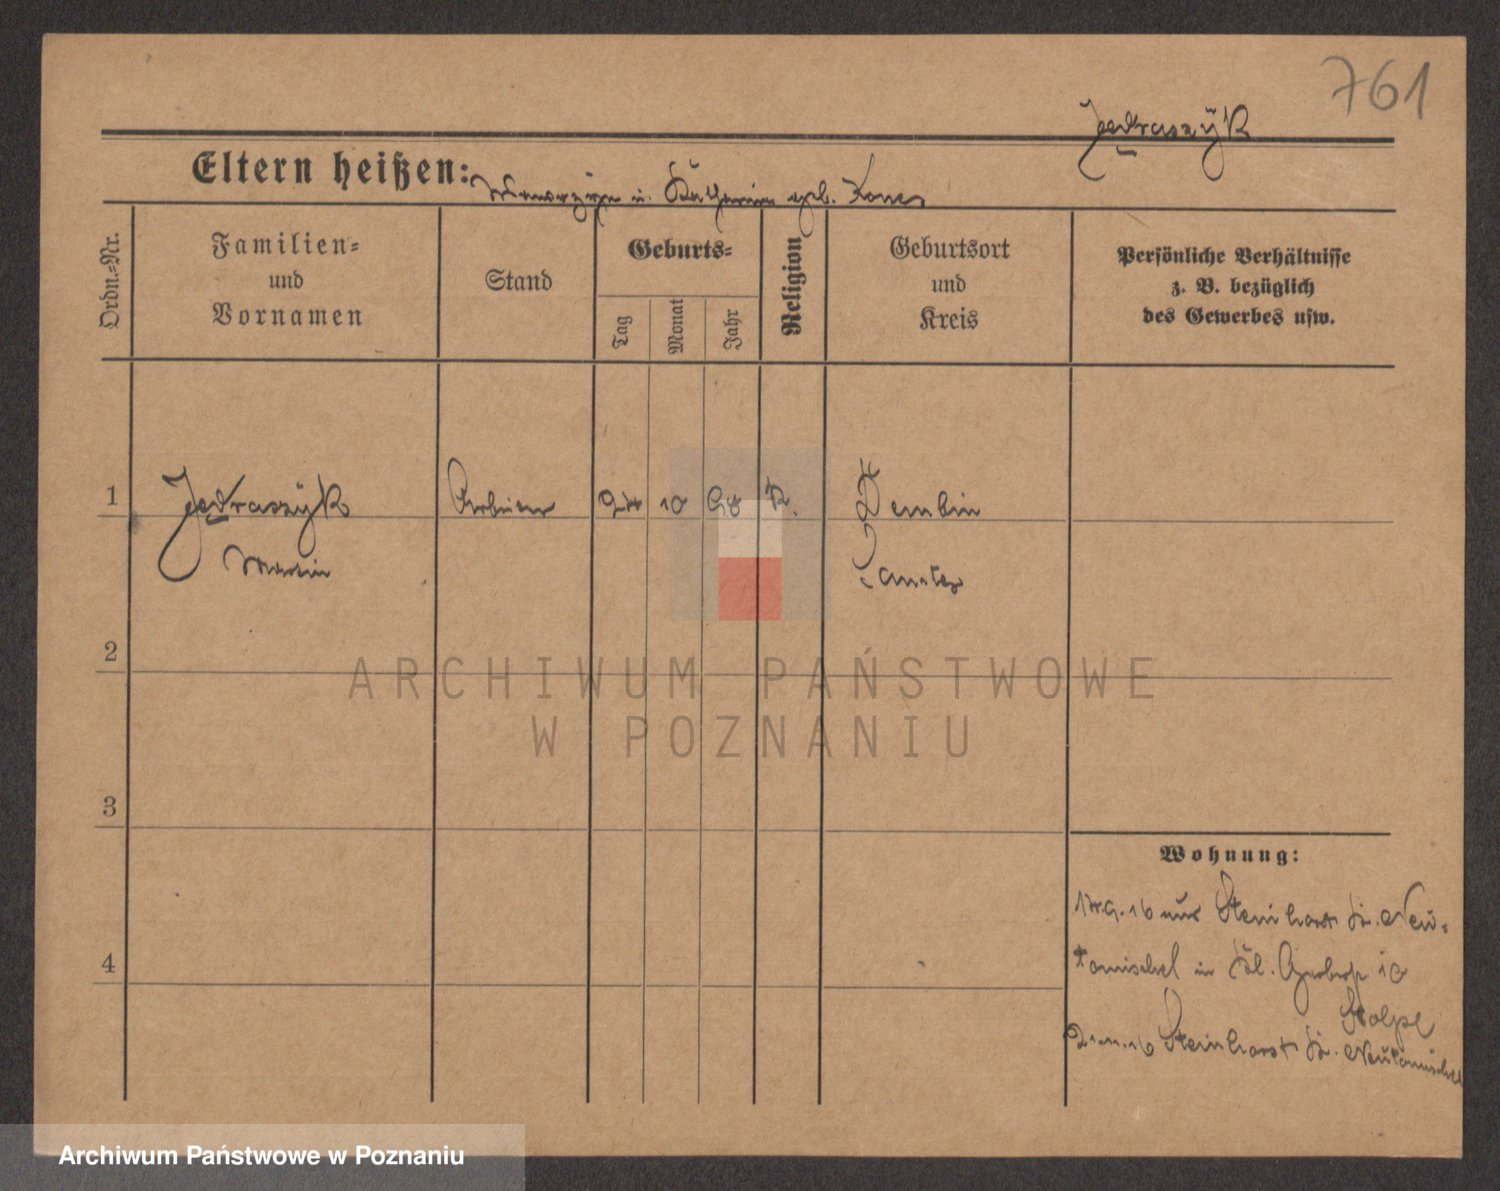 761
Jędraszÿk
Eltern heißen: Wawrzyn u. Katharina geb.
Ordn.-Nr.
Familien-
und
Vornamen
Stand
Geburts-
Tag
Monat
Jahr
Religion
Geburtsort
und
Kreis
Persönliche Verhältnisse
z. B. bezüglich
des Gewerbes usw.
1 Jędraszÿk Arbeiter 10 K. Dembin
Martin Samter
2
ARCHIWUM PAŃSTWOWE
W POZNANIU
3
Wohnung:
16 aus Steinhorst Kr. Neu-
4
tomischel in Kl. 10
Stolpe
16 Steinhorst Kr. Neutomischel
Archiwum Państwowe w Poznaniu